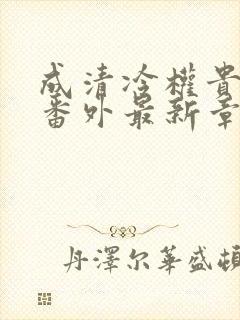 成清冷權貴
番外最新章
丹澤尔華盛頓